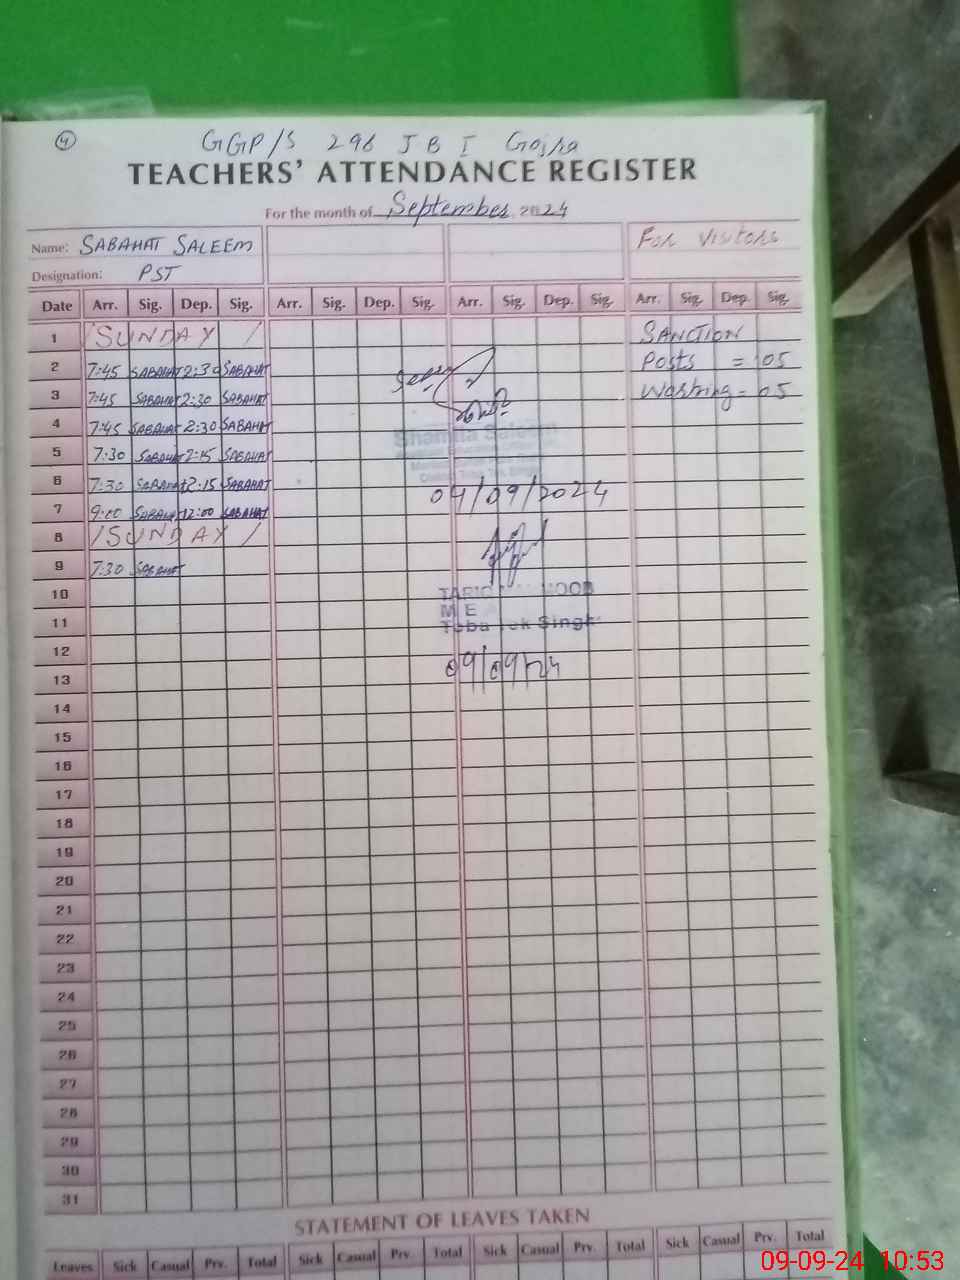 4
GGP/S 296 JB I Gojra
TEACHERS' ATTENDANCE REGISTER
For the month of September 2024
Name: SABAHAT SALEEM
For Visitors
Designation: PST
Date Arr. Sig. Dep. Sig. Arr. Sig. Dep. Sig. Arr. Sig. Dep. Sig. Arr. Sig. Dep. Sig.
1 / SUNDAY / SANCTION
2 7:45 SABAHAT 2:30 SABAHAT Posts = 05
3 7:45 SABAHAT 2:30 SABAHAT Working = 05
4 7:45 SABAHAT 2:30 SABAHAT
Saleem
5 7:30 SABAHAT 2:15 SABAHAT
6 7:30 SABAHAT 2:15 SABAHAT
04/09/2024
7 9:00 SABAHAT 12:00 SABAHAT
8 / SUNDAY /
9 7:30 SABAHAT
10
M E A
11
Toba Tek Singh
12
09/09/24
13
14
15
16
17
18
19
20
21
22
23
24
25
26
27
28
29
30
31
STATEMENT OF LEAVES TAKEN
Leaves Sick Casual Prv. Total Sick Casual Prv. Total Sick Casual Prv. Total Sick Casual Prv. Total
09-09-24 10:53